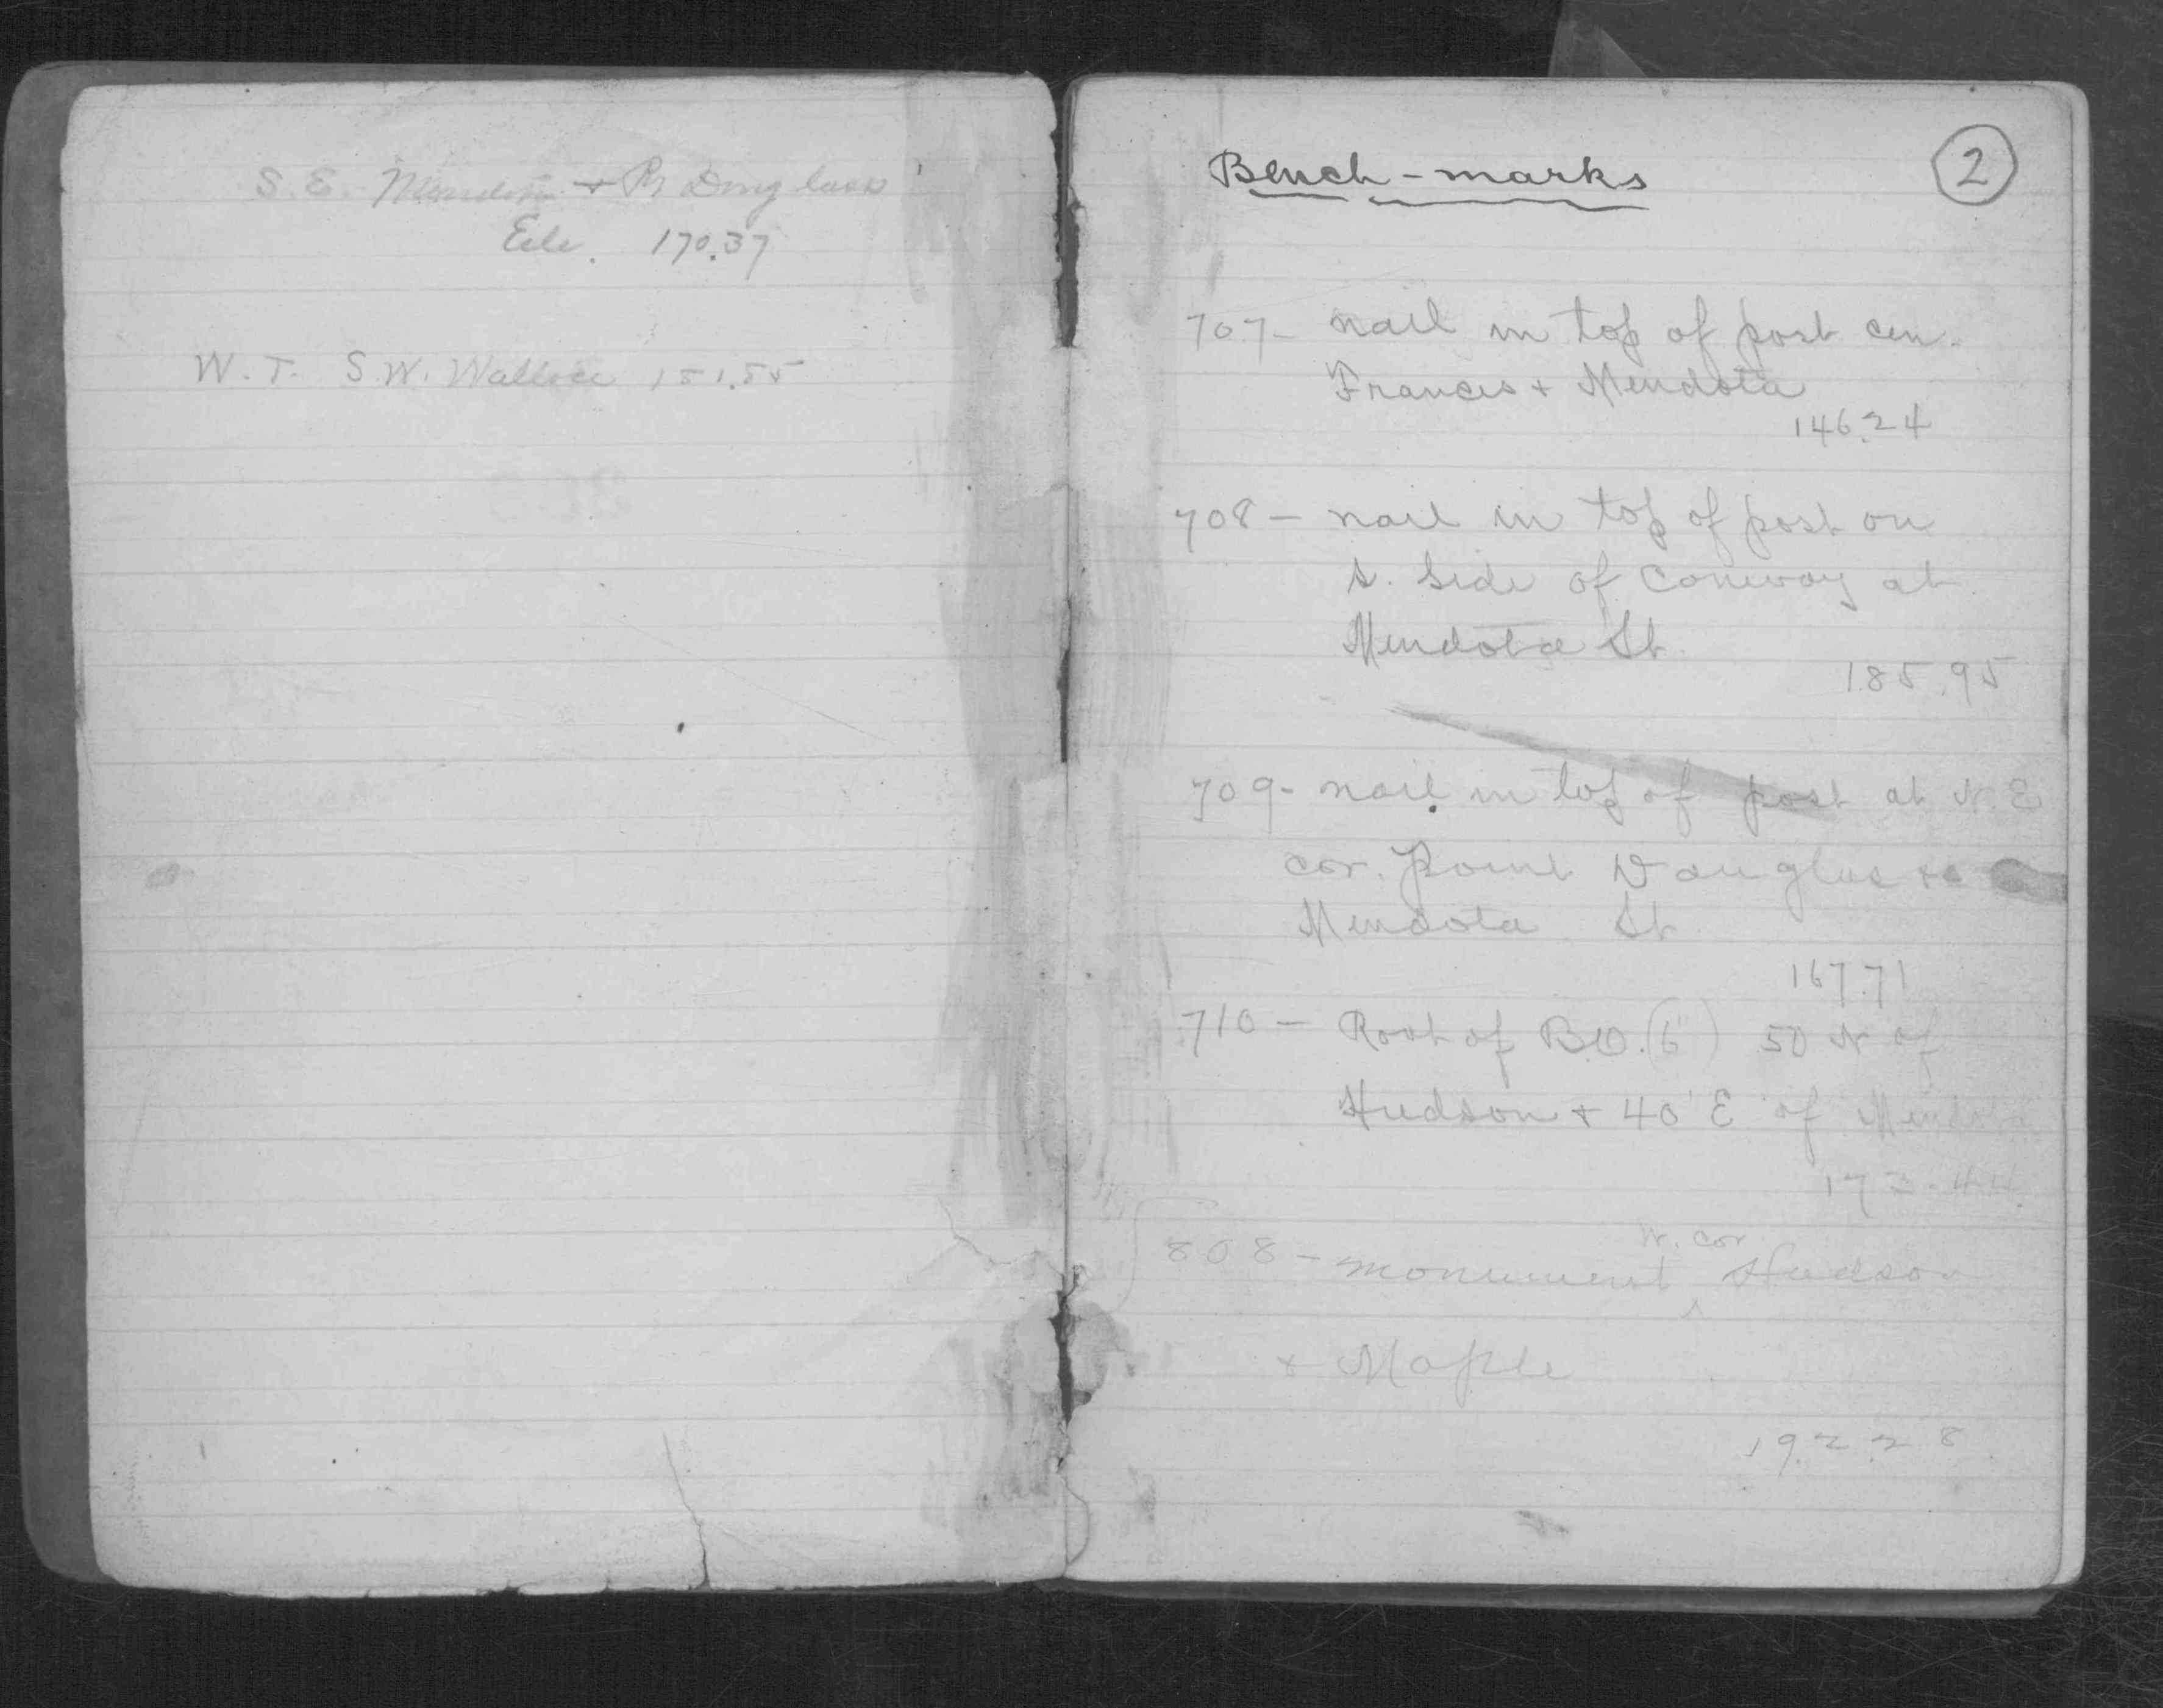 S.E. Mendota + Pt Douglass
Ele. 170.37
W.T. S.W. Wallace 151.55
Bench-marks
2
707- nail in top of post cen.
Frances + Mendota
146.24
708- nail in top of post on
S. Side of Conway at
Mendota St.
185.95
709- nail in top of post at N.E
cor. Point Douglas +
Mendota St
167.71
710- Root of B.O. (6") 50 N of
Hudson + 40' E of Mendota
.44
W. cor
808- monument ^ Hudson
+ Maple
192.28